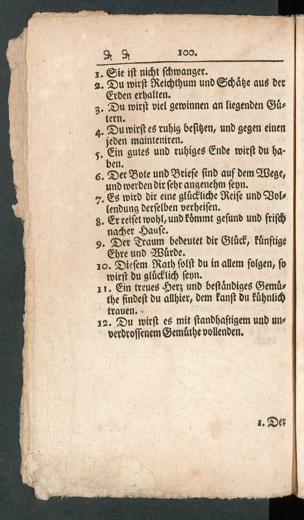 100.
1. Sie ist nicht schwanger.
2. Du wirst Reichthum und Schätze aus der
Erden erhalten.
3. Du wirst viel gewinnen an liegenden Gü-
tern.
4. Du wirst es ruhig besitzen, und gegen einen
jeden mainteniren.
5. Ein gutes und ruhiges Ende wirst du ha-
ben.
6. Der Bote und Briefe sind auf dem Wege,
und werden dir sehr angenehm seyn.
7. Es wird dir eine glückliche Reise und Vol-
lendung derselben verheisen.
8. Er reiset wohl, und kömmt gesund und frisch
nacher Hause.
9. Der Traum bedeutet dir Glück, künftige
Ehre und Würde.
10. Diesem Rath solst du in allem folgen, so
wirst du glücklich seyn.
11. Ein treues Herz und beständiges Gemü-
the findest du allhier, dem kanst du kühnlich
trauen.
12. Du wirst es mit standhaftigem und un-
verdrossenem Gemüthe vollenden.
1. Der